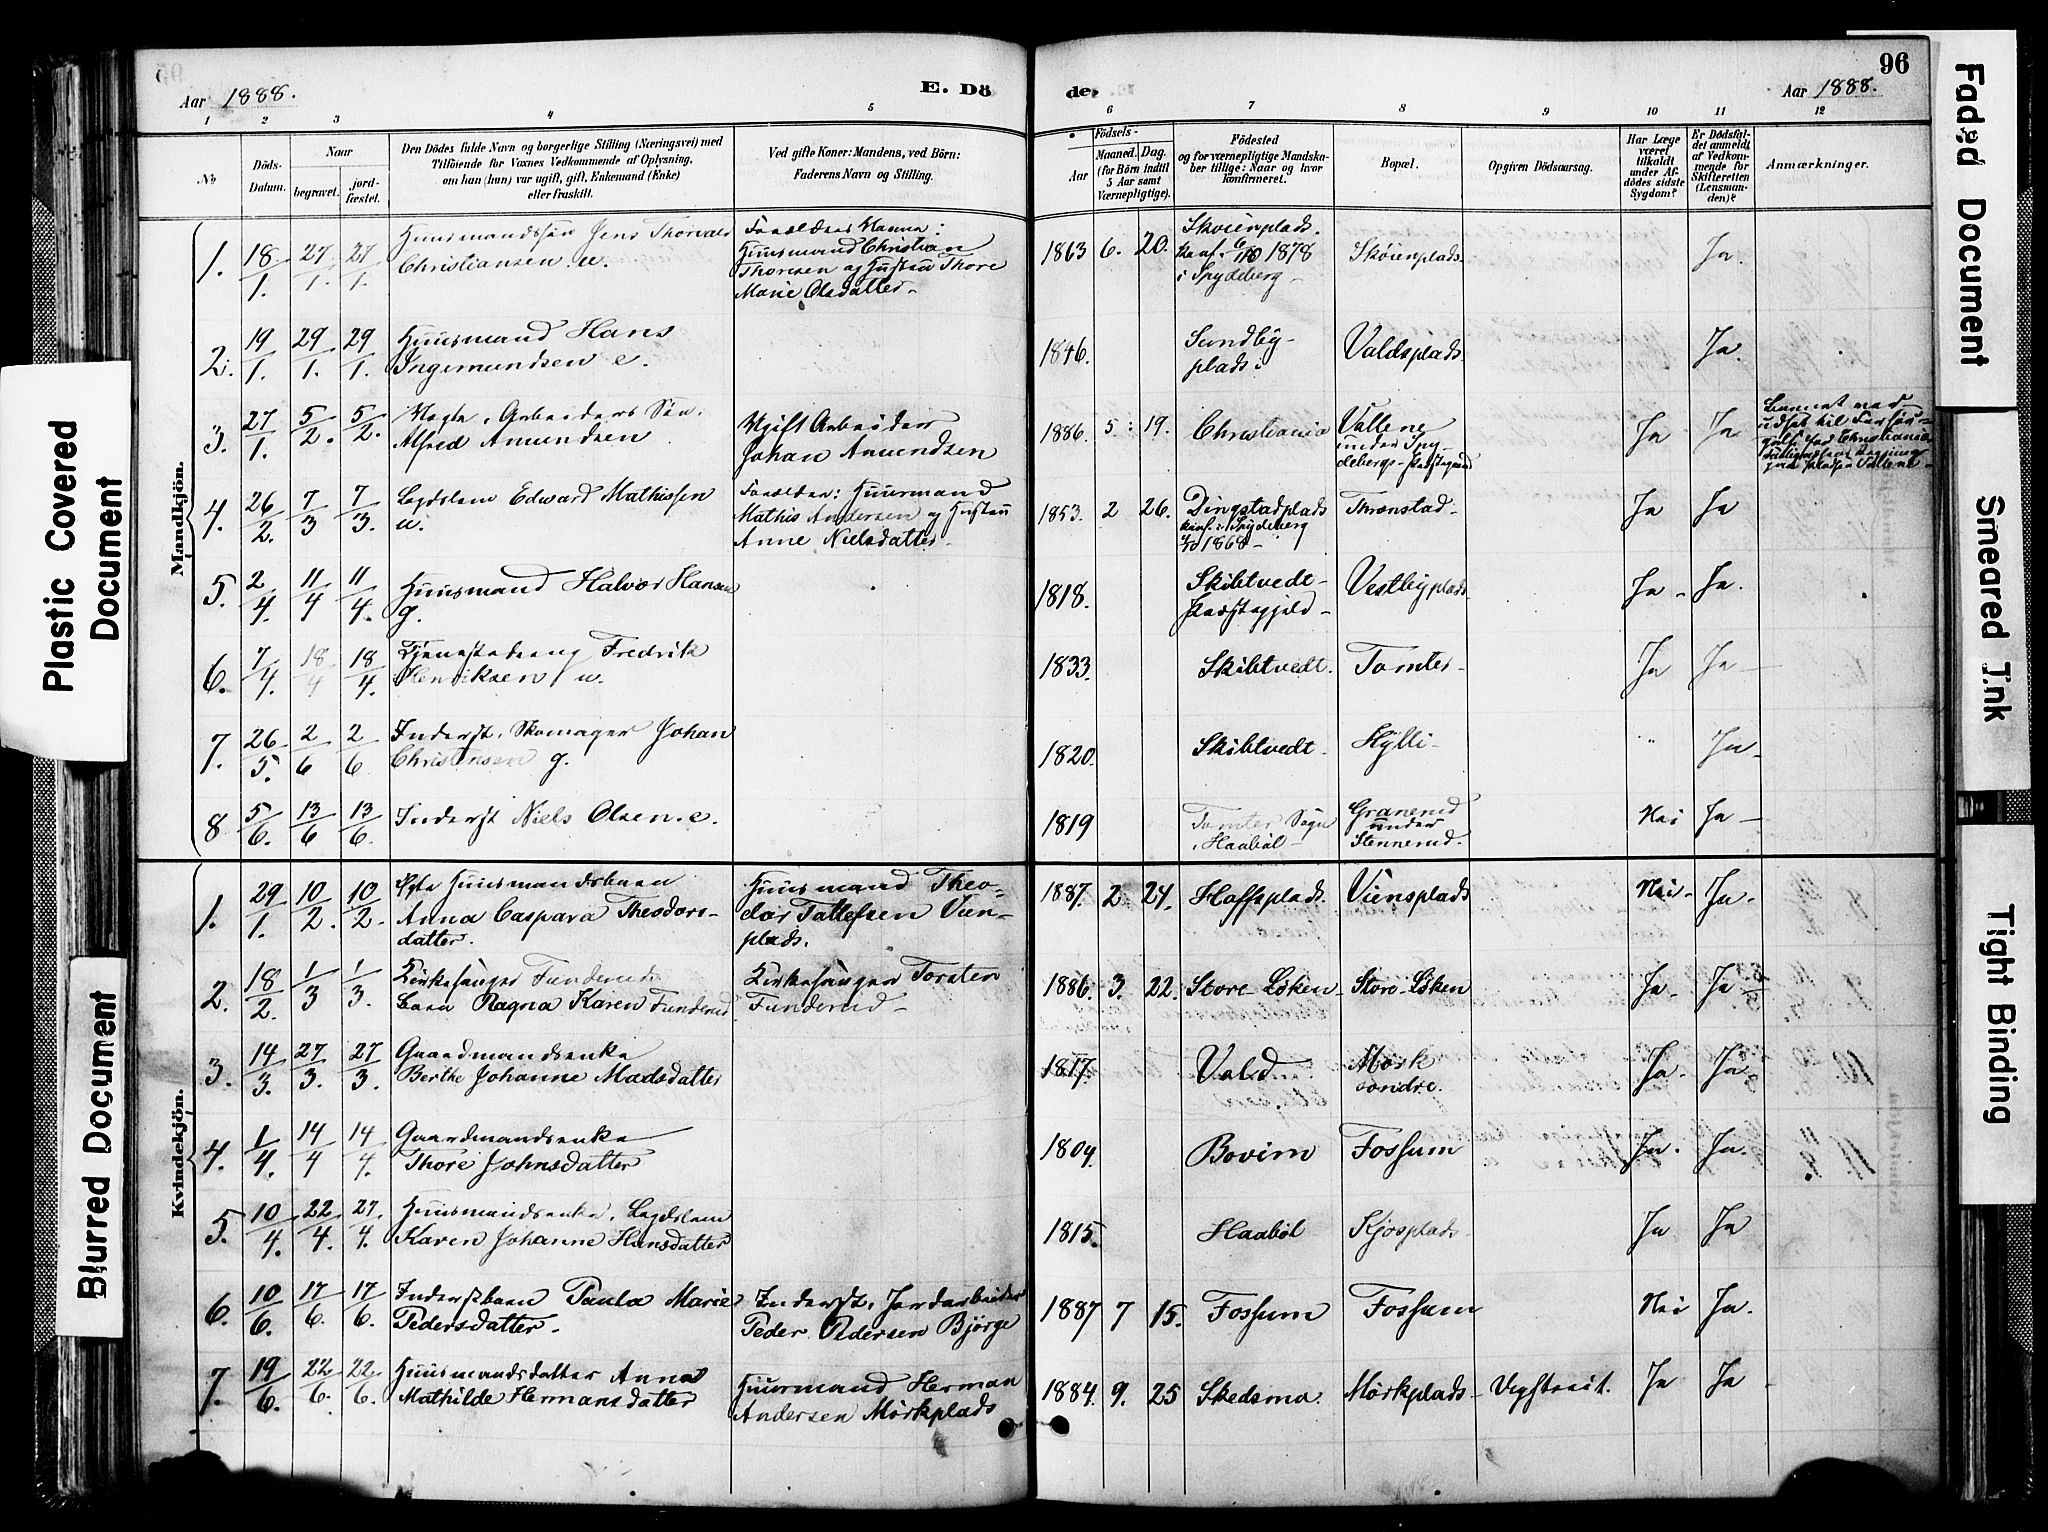 Plastic Covered
Document
Blurred Document
Faded Document
Smeared Ink
Tight Binding
96
Aar 1888.
E. Dö
de.
Aar 1888.
1 2 3 4 5 6 7 8 9 10 11 12
No
Döds-Datum.
Naar
begravet.
jord-fæstet.
Den Dödes fulde Navn og borgerlige Stilling (Næringsvei) med
Tilföiende for Voxnes Vedkommende af Oplysning,
om han (hun) var ugift, gift, Enkemand (Enke)
eller fraskilt.
Ved gifte Koner: Mandens, ved Börn:
Faderens Navn og Stilling.
Födsels-
Aar
Maaned. Dag.
(for Börn indtil
5 Aar samt
Værnepligtige).
Födested
og for værnepligtige Mandska-
ber tillige: Naar og hvor
konfirmeret.
Bopæl.
Opgiven Dödsaarsag.
Har Læge
været
tilkaldt
under Af-
dödes sidste
Sygdom?
Er Dödsfal-
det anmeldt
af Vedkom-
mende for
Skifteretten
(Lensman-
den)?
Anmærkninger.
Mandkjön.
1. 18/1. 27/1. 27/1. Huusmandssön Jens Thorvald
Christiansen. u.
Forældres Navne:
Huusmand Christian
Thoresen og Hustru Thore
Marie Olsdatter-
1863 6. 20. Skoienplads.
konf. 6/10 1878
i Spydeberg-
Skoienplads. Ja.
2. 19/1. 29/1. 29/1. Huusmand Hans
Ingemundsen e.
1846. Sundby-
plads.
Valdsplads. Ja.
3. 27/1. 5/2. 5/2. Uægte, Arbeiders Sön,
Alfred Amundsen
Ugift Arbeider
Johan Amundsen
1886. 5: 19. Christiania
Vollene
under Spy-
debergs-Præstegaard
Ja Ja
4. 26/2. 7/3 7/3. Lægdslem Edward Mathissen
u.
Forældre: Huusmand
Mathis Andersen og Hustru
Anne Nielsdatter-
1853. 2 26. Dingstadplads
konf. i Spydeberg
1868-
Thronstad- Ja Ja
5. 2/4. 11/4 11/4. Huusmand Halvor Hansen
g.
1818. Skibtvedt-
Præstegjeld-
Vestbyplads. Ja- Ja.
6. 7/4. 18/4 18/4. Tjenestedreng Fredrik
Henriksen u.
1833. Skibtvedt. Tomter- Ja Ja-
7. 26/5. 2/6 2/6. Inderst, Skomager Johan
Christensen g.
1820. Skibtvedt. Hylli- " Ja-
8. 5/6. 13/6 13/6. Inderst Niels Olsen. e.
1819 Tomter Sogn
i Haabøl-
Granerud
under
Stennerud.
Nei Ja-
Kvindekjön.
1. 29/1. 10/2. 10/2. Ægte Huusmandsbarn
Anna Caspara Theodors-
datter.
Huusmand Theo-
dor Tollefsen Vien-
plads.
1887. 2. 24. Haffsplads. Viensplads Nei- Ja-
2. 18/2. 1/3 1/3. Kirkesanger Funderuds
Barn Ragna Karen Funderud
Kirkesanger Torsten
Funderud-
1886. 3. 22. Store-Løken- Store-Løken Ja- Ja
3. 14/3. 27/3. 27/3. Gaardmandsenke
Berthe Johanne Madsdatter
1817. Vold Mørk
søndre. Ja. Ja-
4. 1/4. 14/4 14/4. Gaardmandsenke
Thore Johnsdatter
1809. Bovim Fossum Ja. Ja.
5. 10/4. 22/4. 27/4. Huusmandsenke, Lægdslem
Karen Johanne Hansdatter
1815. Haabøl Kjosplads- Ja Ja
6. 10/6. 17/6. 17/6. Inderstbarn Paula Marie
Pedersdatter-
Inderst, Jordarbeider
Peder Pedersen Bjørge
1887 7 15. Fossum Fossum Nei Ja.
7. 19/6. 22/6. 22/6. Huusmandsdatter Anna
Mathilde Hermansdatter
Huusmand Herman
Andersen Mørkplads
1884. 9. 25 Skedsmo. Mørkplads- Ja Ja-